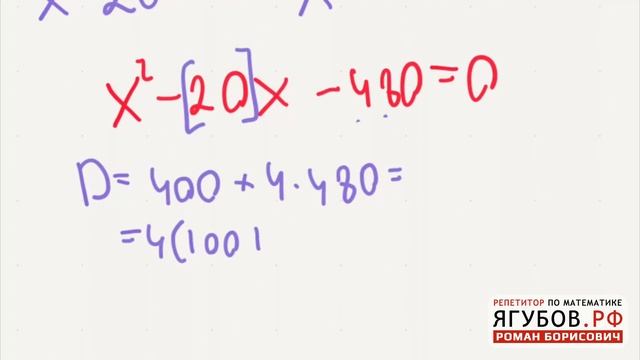 x² - [20]x - 480 = 0
D = 400 + 4 · 480 =
= 4(100
РЕПЕТИТОР ПО МАТЕМАТИКЕ
ЯГУБОВ.РФ
РОМАН БОРИСОВИЧ